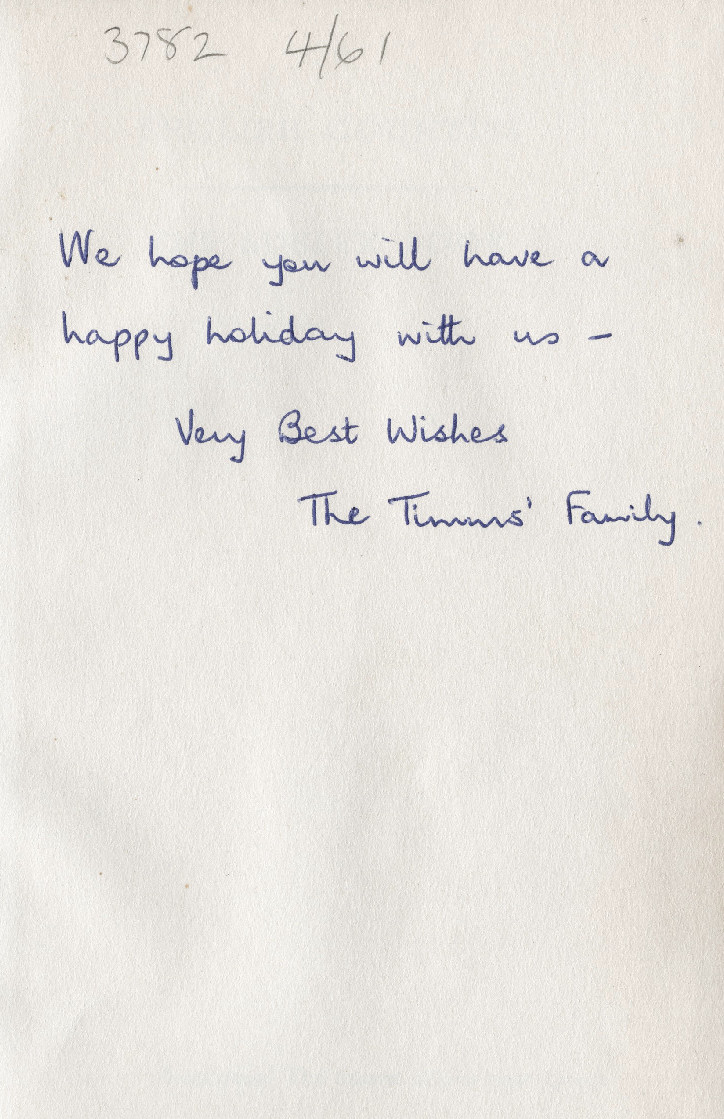 3782 4/61
We hope you will have a
happy holiday with us –
Very Best Wishes
The Timms' Family.